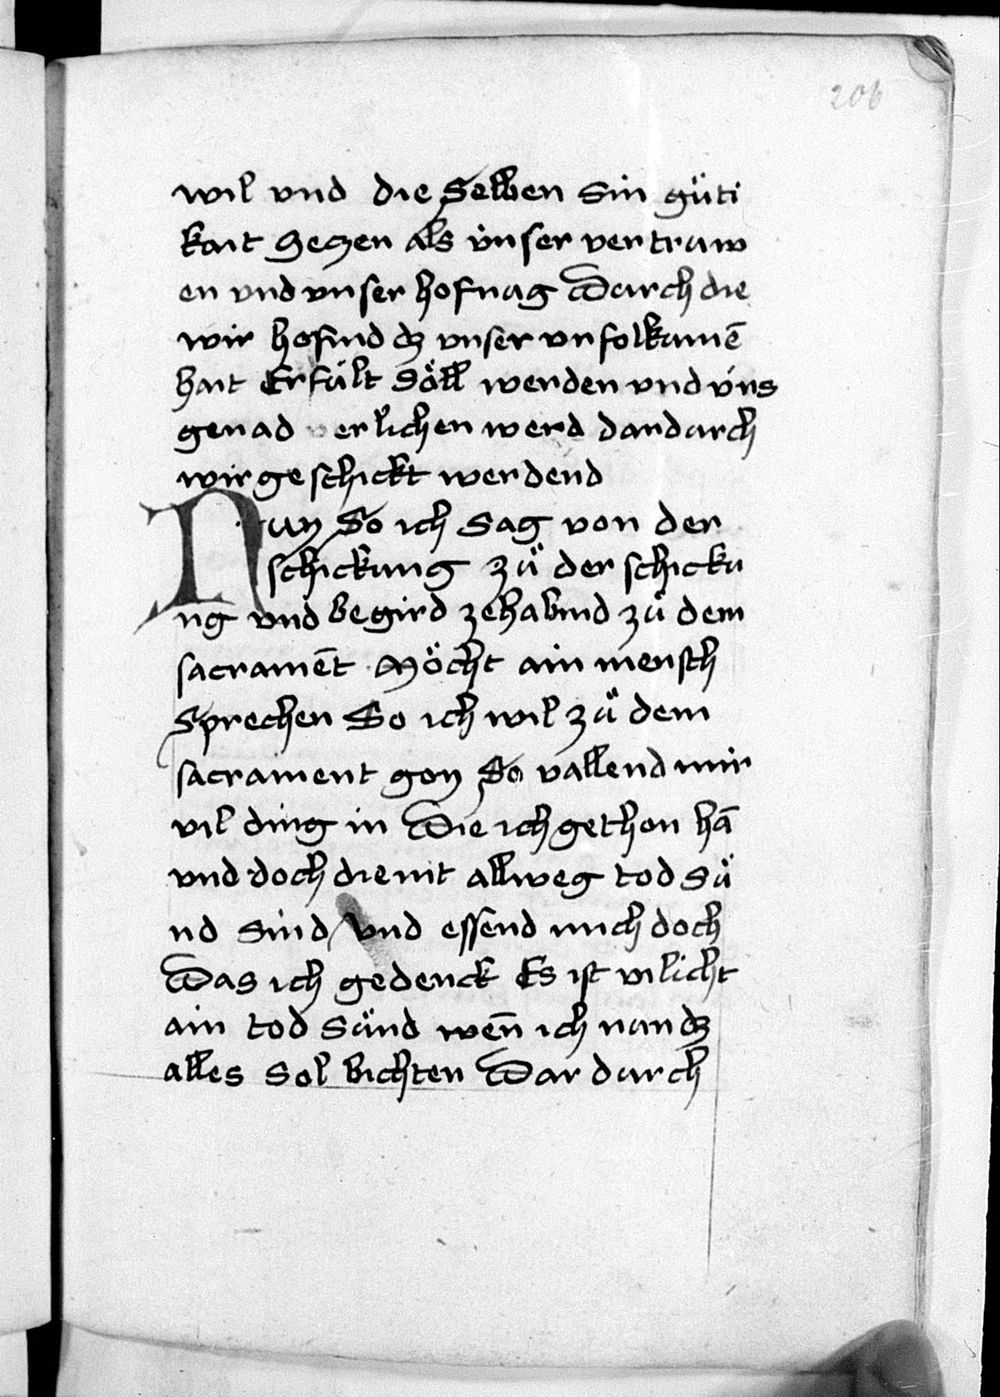 206
wil vnd die Selben Sin güti
kait Setzen als ünser vertruw
en vnd vnser hofnug Durch die
wir hofind dz vnser vnfolkumē
hait Erfült Söll werden vnd üns
genad verlichen werd dardurch
wir geschickt werdend
Nun So ich Sag von der
schickung zů der schicku
ng vnd begird zehabind zů dem
sacramēt Möcht ain mensch
Sprechen So ich wil zů dem
sacrament gon So vallend mir
vil ding in Die ich gethon hā
vnd doch die nit allweg tod Sü
nd Sind vnd essend mich doch
Das ich gedenck Es ist vilicht
ain tod Sünd wen̄ ich nun dz
alles Sol bichten Dar durch